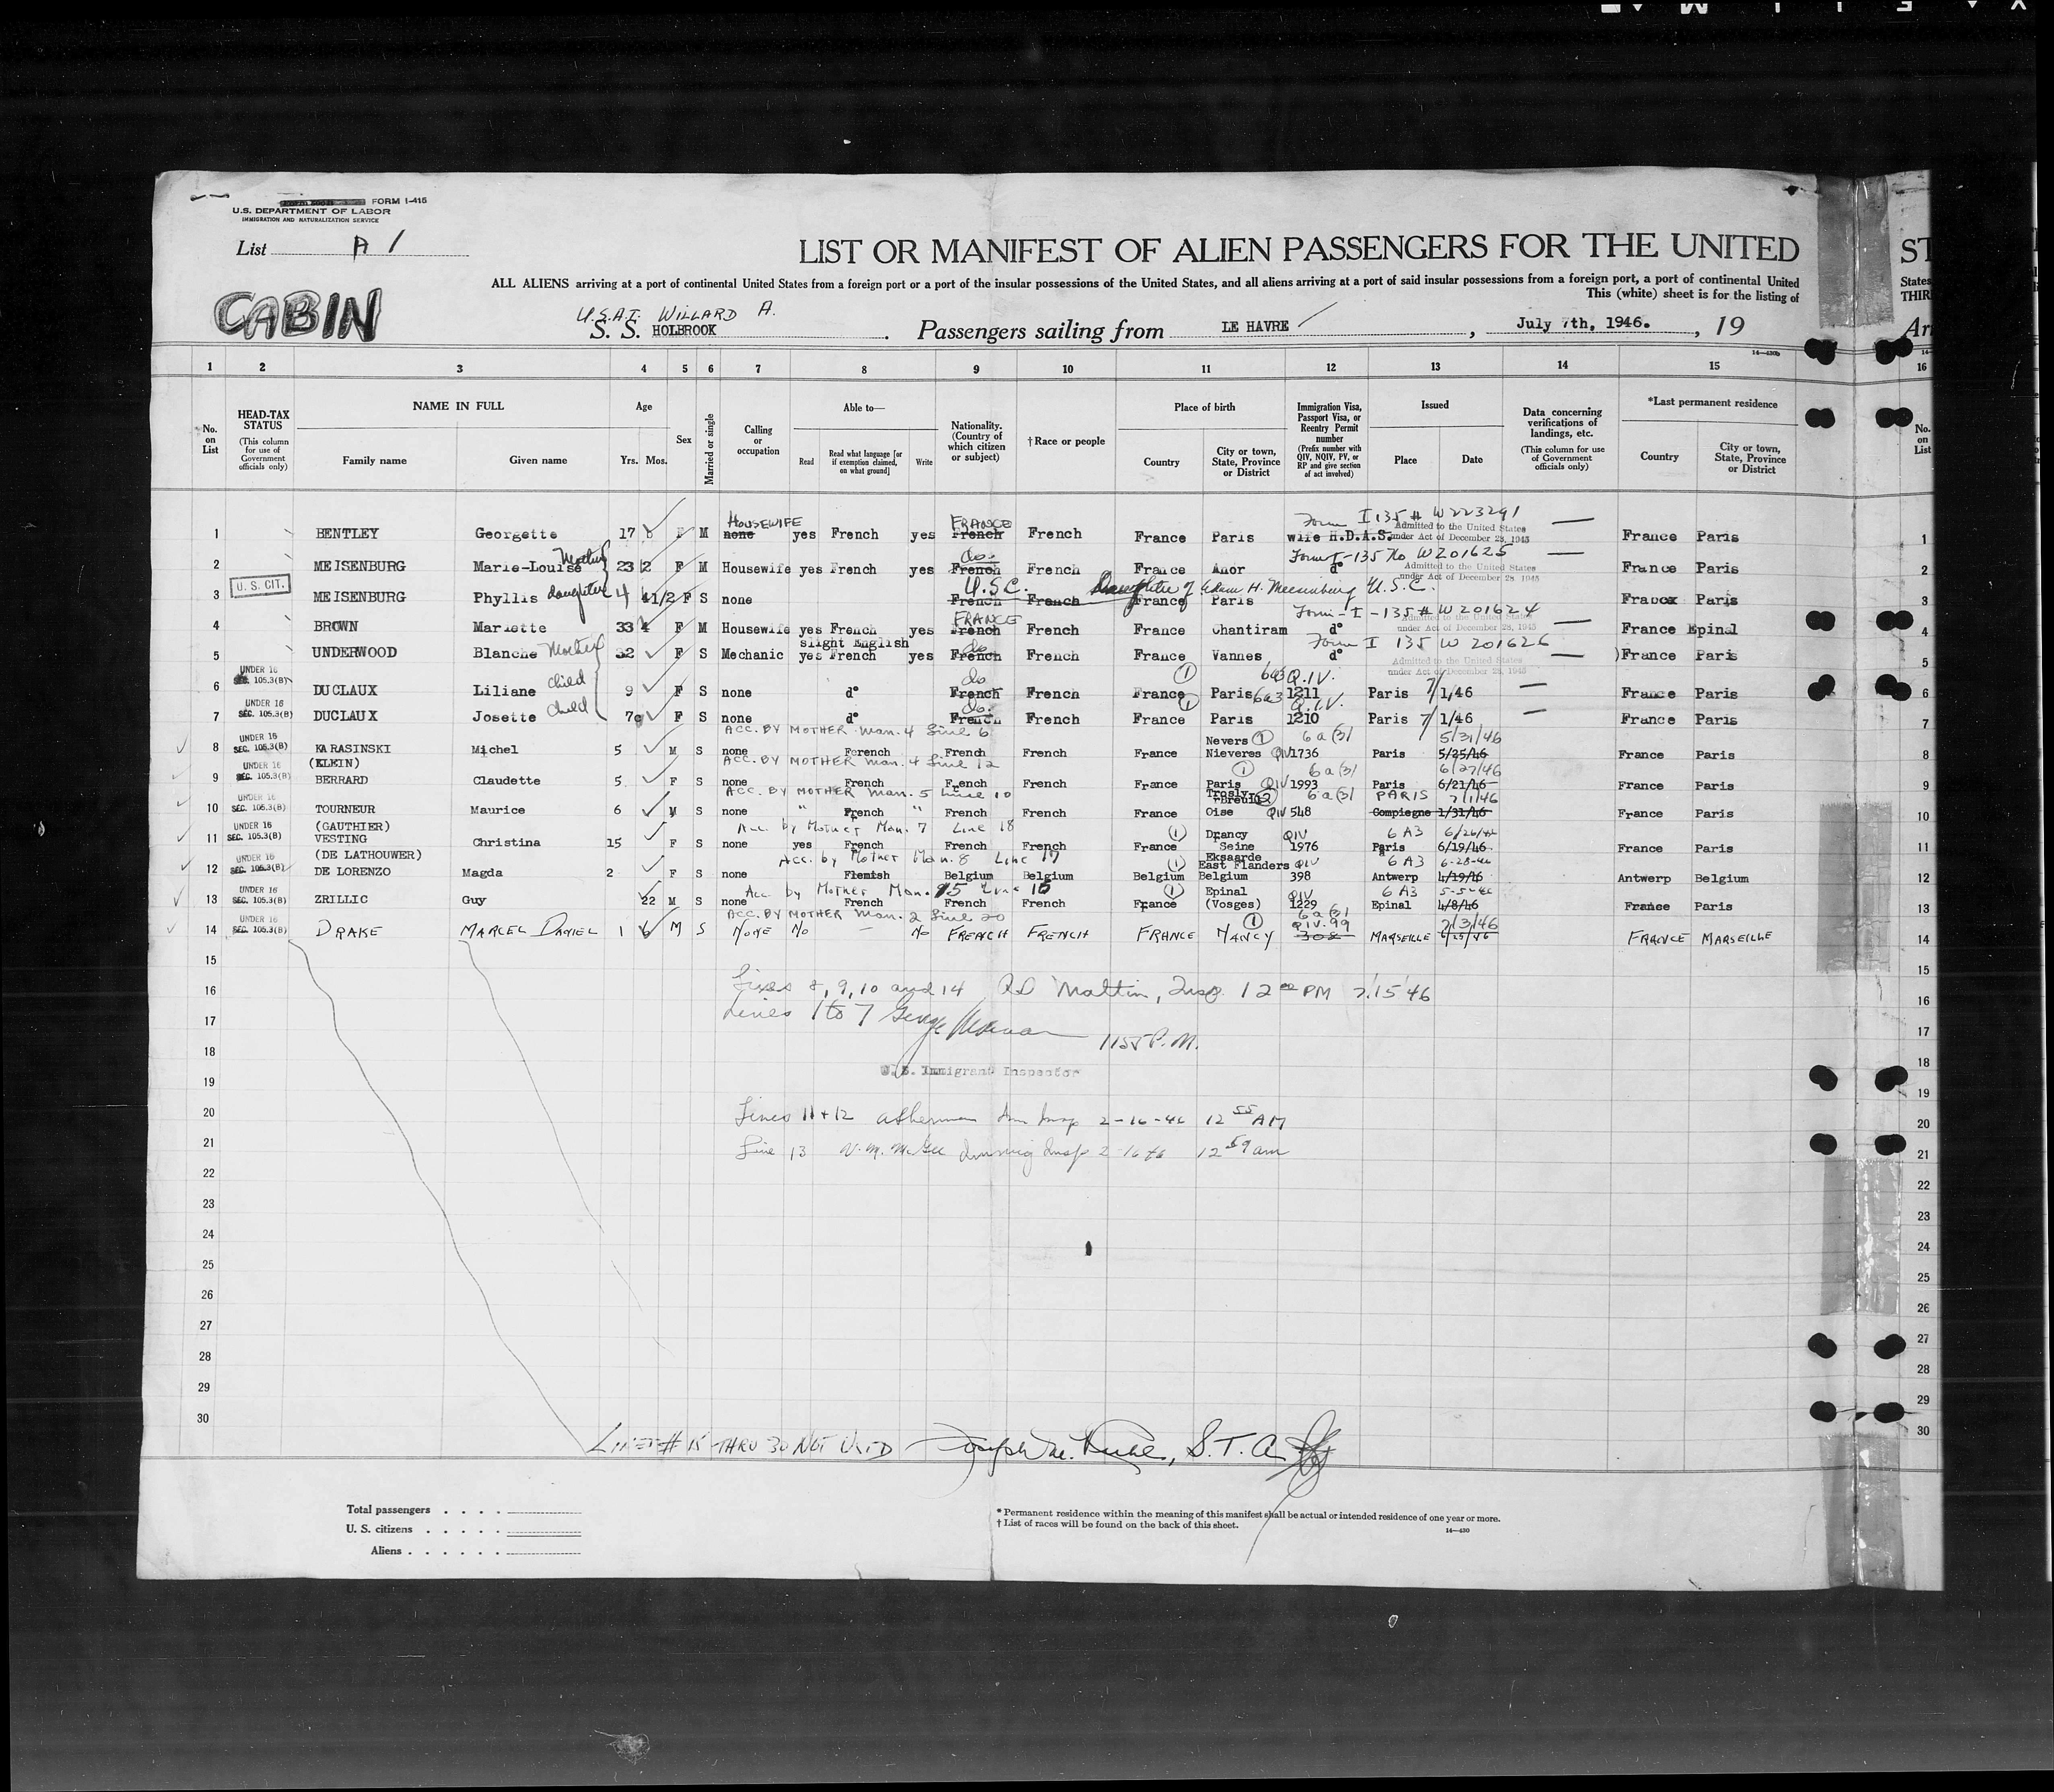 FORM I-415
U.S. DEPARTMENT OF LABOR
IMMIGRATION AND NATURALIZATION SERVICE
List A 1
LIST OR MANIFEST OF ALIEN PASSENGERS FOR THE UNITED ST
ALL ALIENS arriving at a port of continental United States from a foreign port or a port of the insular possessions of the United States, and all aliens arriving at a port of said insular possessions from a foreign port, a port of continental United States
This (white) sheet is for the listing of THIR
CABIN
U.S.A.T. WILLARD A.
S. S. HOLBROOK . Passengers sailing from LE HAVRE , July 7th, 1946. , 19 Arr
14-430b
1 2 3 4 5 6 7 8 9 10 11 12 13 14 15 16
No. on List
HEAD-TAX STATUS (This column for use of Government officials only)
NAME IN FULL
Family name Given name
Age Yrs. Mos.
Sex
Married or single
Calling or occupation
Able to—
Read Read what language [or if exemption claimed, on what ground] Write
Nationality. (Country of which citizen or subject)
†Race or people
Place of birth
Country City or town, State, Province or District
Immigration Visa, Passport Visa, or Reentry Permit number (Prefix number with QIV, NQIV, PV, or RP and give section of act involved)
Issued
Place Date
Data concerning verifications of landings, etc. (This column for use of Government officials only)
*Last permanent residence
Country City or town, State, Province or District
No. on List
HOUSEWIFE FRANCE Form I 135 # W223291
Admitted to the United States
1 BENTLEY Georgette 17 F M none yes French yes French French France Paris wife H.D.A.S. under Act of December 28, 1945 — France Paris 1
Mother do. Form I-135 No W201625
Admitted to the United States
2 MEISENBURG Marie-Louise 23 2 F M Housewife yes French yes French French France Anor d° under Act of December 28 1945 — France Paris 2
U. S. CIT. daughter U.S.C. Daughter of Adam H. Meisenburg U.S.C.
3 MEISENBURG Phyllis 4 1/2 F S none French French France Paris France Paris 3
FRANCE Form-I-135# W201624
Admitted to the United States
4 BROWN Mariette 33 4 F M Housewife yes French yes French French France Chantiram d° under Act of December 28, 1945 — France Epinal 4
slight English do Form I 135 W 201626
5 UNDERWOOD Blanche Mother 32 F S Mechanic yes French yes French French France Vannes d° — France Paris 5
Admitted to the United States
under Act of December 28, 1945
UNDER 16 child do 6a3 Q.IV.
6 SEC. 105.3(B) DUCLAUX Liliane 9 F S none d° French French France Paris 1211 Paris 7/1/46 — France Paris 6
UNDER 16 child do. 6a3 Q.I.V.
7 SEC. 105.3(B) DUCLAUX Josette 7 F S none d° French French France Paris 1210 Paris 7/1/46 — France Paris 7
ACC. BY MOTHER Man. 4 Line 6 Nevers 6a(3) 5/31/46
8 UNDER 16 SEC. 105.3(B) KARASINSKI Michel 5 M S none French French French France Nieveres QIV 1736 Paris 5/25/46 France Paris 8
(KLEIN) ACC. BY MOTHER Man. 4 Line 12 6a(3) 6/27/46
9 UNDER 16 SEC. 105.3(B) BERRARD Claudette 5 F S none French French French France Paris QIV 1993 Paris 6/21/46 France Paris 9
ACC. BY MOTHER Man. 5 Line 10 Trosly-Breuil 6a(3) PARIS 7/1/46
10 UNDER 16 SEC. 105.3(B) TOURNEUR Maurice 6 M S none " French " French French France Oise QIV 548 Compiegne 1/31/46 France Paris 10
(GAUTHIER) Acc. by Mother Man. 7 Line 18 Drancy QIV 6 A3 6/26/46
11 UNDER 16 SEC. 105.3(B) VESTING Christina 15 F S none yes French French French France Seine 1976 Paris 6/19/46 France Paris 11
(DE LATHOUWER) Acc. by Mother Man. 8 Line 17 Eksaarde QIV 6 A3 6-28-46
12 UNDER 16 SEC. 105.3(B) DE LORENZO Magda 2 F S none Flemish Belgium Belgium Belgium East Flanders Belgium 398 Antwerp 4/19/46 Antwerp Belgium 12
Acc. by Mother Man. 15 Line 16 Epinal QIV 6 A3 5-5-46
13 UNDER 16 SEC. 105.3(B) ZRILLIC Guy 22 M S none French French French France (Vosges) 1229 Epinal 4/8/46 France Paris 13
ACC. BY MOTHER Man. 2 Line 20 6a(3) QIV-99 7/3/46
14 UNDER 16 SEC. 105.3(B) DRAKE MARCEL DANIEL 1 6 M S NONE NO — NO FRENCH FRENCH FRANCE NANCY 308 MARSEILLE FRANCE MARSEILLE 14
15 15
16 Lines 8, 9, 10 and 14 Insp. 12 00 PM 7/15/46 16
17 Lines 1 to 7 George 17
1155 P.M.
18 U. S. Immigrant Inspector 18
19 19
20 Lines 11 + 12 Imm Insp 2-16-46 12 55 AM 20
21 Line 13 Immig Insp 2 16 46 12 59 am 21
22 22
23 23
24 24
25 25
26 26
27 27
28 28
29 29
30 30
LINES # 15 THRU 30 NOT USED Joseph S.T.A.
Total passengers . . . .
U. S. citizens . . . . .
Aliens . . . . . .
* Permanent residence within the meaning of this manifest shall be actual or intended residence of one year or more.
† List of races will be found on the back of this sheet.
14-430